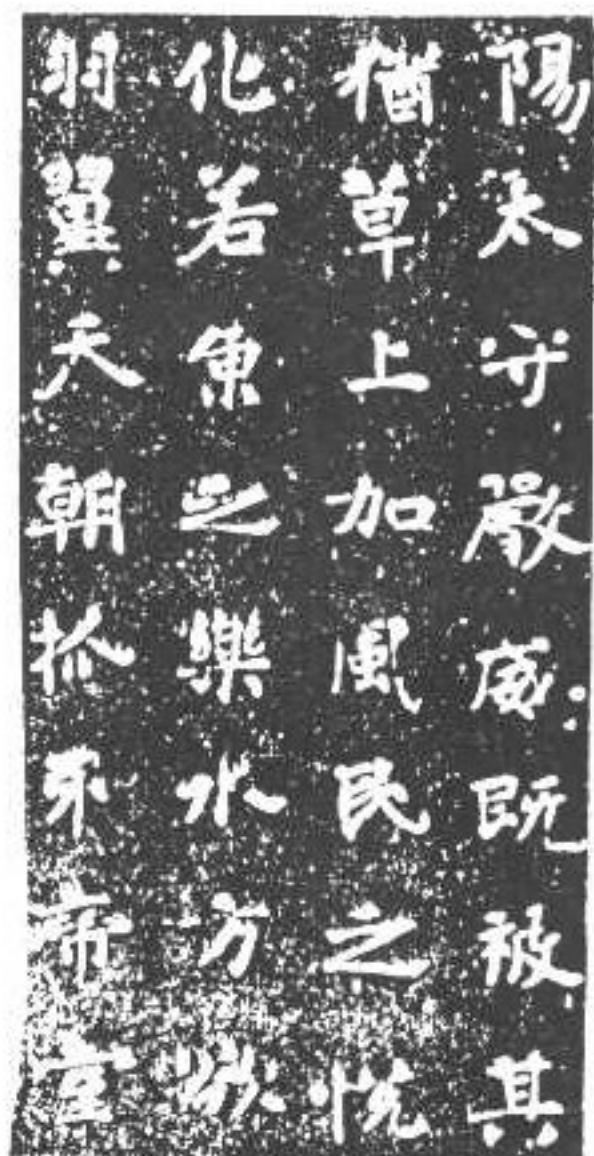 陽太守嚴威既被其
猶草上加風民之悅
化若魚之樂水方欲
羽翼天朝抓牙帝室